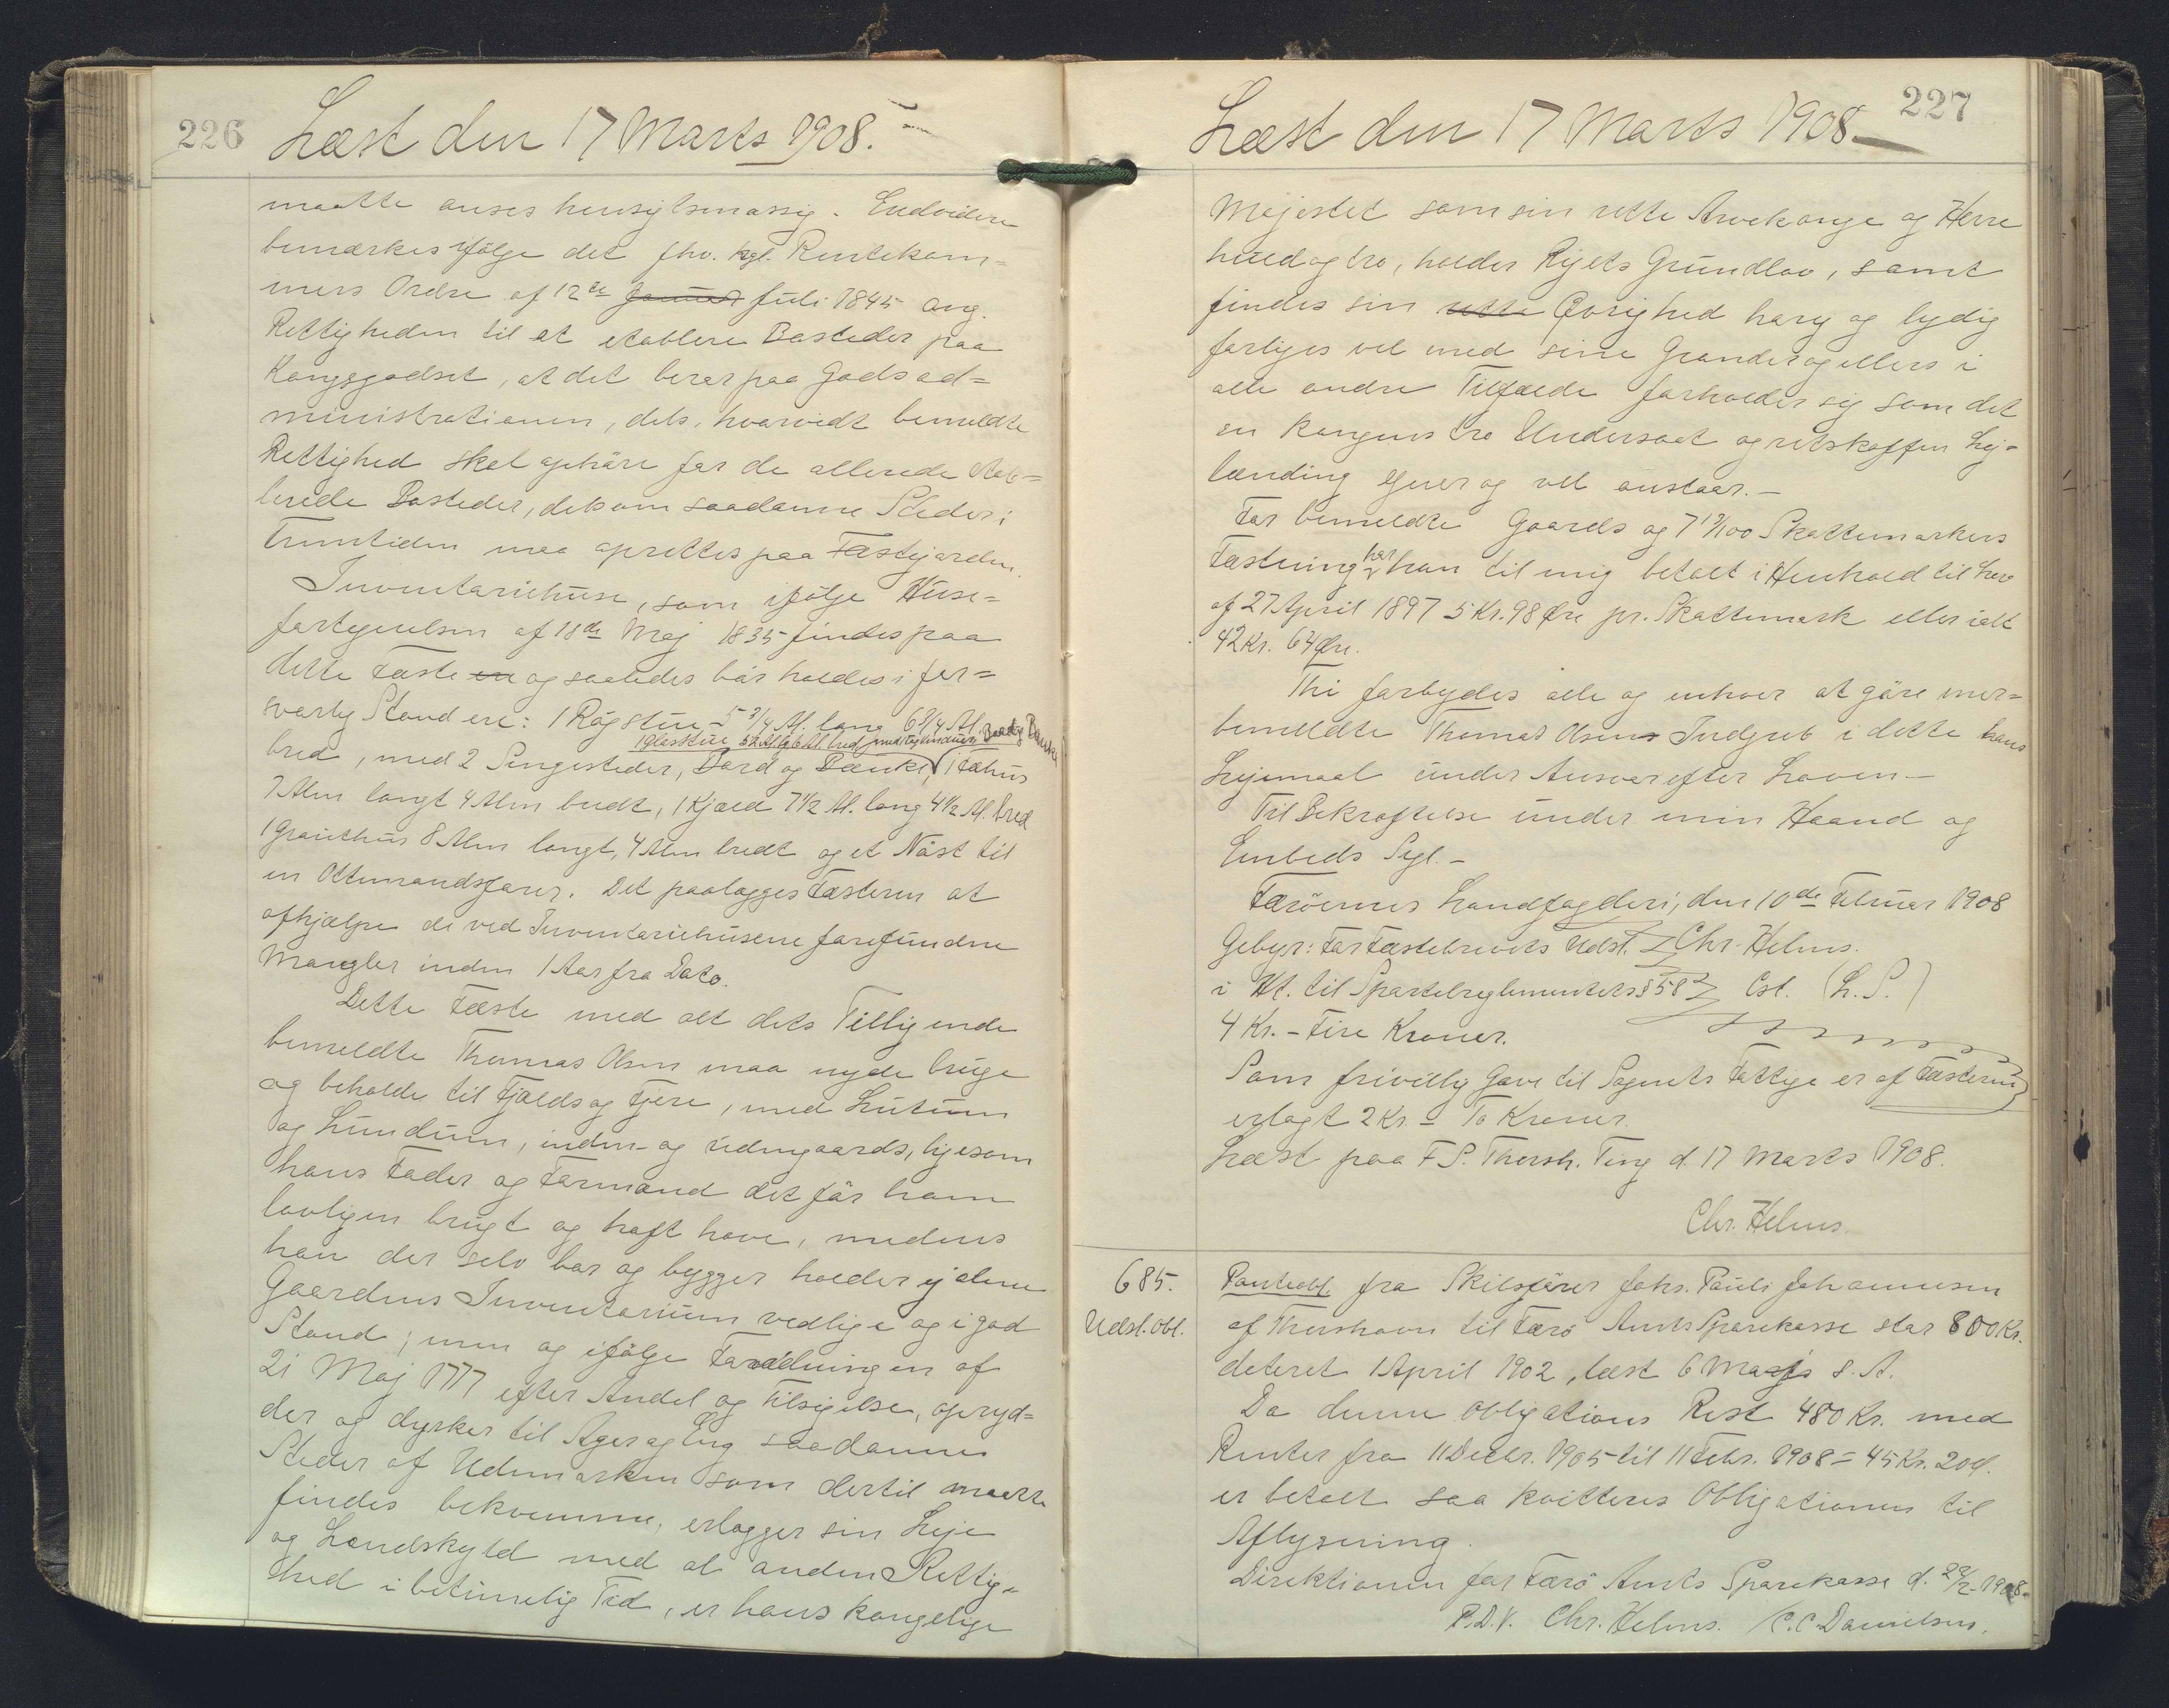 226 Læst den 17 Marts 1908.
maatte anses hensigtsmæssig. Endvidere
bemærkes ifølge det fhv. kgl. Rentekam=
mers Ordre af 12te Januar Juli 1845 ang.
Rettigheden til at etablere Bosteder paa
Kongsgodset, at det beror paa Godsad=
ministrationen, dels, hvorvidt bemeldte
Rettighed skal ophøre for de allerede etab=
lerede Bosteder, dels om saadanne Steder i
Fremtiden maa oprettes paa Fæstejorden.
Inventariehuse, som ifølge Huse=
fortegnelsen af 18de Maj 1835 findes paa
dette Fæste en og saaledes bør holdes i for=
svarlig Stand ere: 1 Røgstue 5 3/4 Al. lang 6 3/4 Al.
bred, med 2 Sengesteder, Bord og Bænke, 1 Fæhus
7 Alen langt 4 Alen bredt, 1 Hjald 7 1/2 Al. lang 4 1/2 Al. bred
1 Grauthus 8 Alen langt, 4 Alen bredt og et Nøst til
en Ottemandsfarer. Det paalægges Fæsteren at
afhjælpe de ved Inventariehusene forefundne
Mangler inden 1 Aar fra Dato.
Dette Fæste med alt dets Tilliggende
bemeldte Thomas Olsen maa nyde bruge
og beholde til Fjælds og Fjære, med Lutum
og Lundum, inden- og udengaards, ligesom
hans Fader og Formand det før ham
lovligen brugt og haft have, medens
han der selv bor og bygger holder ej alene
Gaardens Inventarium vedlige og i god
Stand; men og ifølge Forordningen af
21 Maj 1777 efter Andel og Tilsigelse, opryd=
der og dyrker til Ager og Eng saadanne
Steder af Udemarken som dertil maatte
findes bekvemme, erlægger sin Leje
og Landskyld med al anden Rettig=
hed i betimelig Tid, er hans kongelige
Læst den 17 Marts 1908 227
Majestet som sin rette Arvekonge og Herre
huld og tro, holder Rigets Grundlov, samt
findes sin rette Øvrighed hørig og lydig
forliges vel med sine Grander og ellers i
alle andre Tilfælde forholder sig som det
en Kongens tro Undersaat og retskaffen Lej=
lænding egner og vel anstaar.-
For bemeldte Gaards og 7 13/100 Skattemarkers
Fæstning har han til mig betalt i Henhold til Lov
af 27 April 1897 5 Kr. 98 Øre pr. Skattemark eller ialt
42 Kr. 64 Øre.
Thi forbydes alle og enhver at gøre mer=
bemeldte Thomas Olsen Indgreb i dette hans
Lejemaal under Ansvar efter Loven.-
Til Bekræftelse under min Haand og
Embeds Segl.-
Færøernes Landfogderi, den 10de Februar 1908
Gebyr: For Fæstebrevets Udst. Chr. Helms.
i Ht. til Sportelreglementets § 58 Cst. (L.S.)
4 Kr. - Fire Kroner.
Som frivillig Gave til Sognets Fattige er af Fæsteren
erlagt 2 Kr. - To Kroner.
Læst paa F.S. Thorsh. Ting d. 17 Marts 1908.
Chr. Helms.
685. Panteobl. fra Skibsfører Johs. Pauli Johannesen
Udsl. Obl. af Thorshavn til Færø Amts Sparekasse stor 800 Kr.
dateret 1 April 1902, læst 6 Maj s. A.
Da denne Obligations Rest 480 Kr. med
Renter fra 11 Decbr. 1905 til 11 Febr. 1908 = 45 Kr. 20 Ø.
er betalt saa kvitteres Obligationen til
Aflysning.
Direktionen for Færø Amts Sparekasse d. 22/2 1908.
P.D.V. Chr. Helms. C.C. Danielsen.